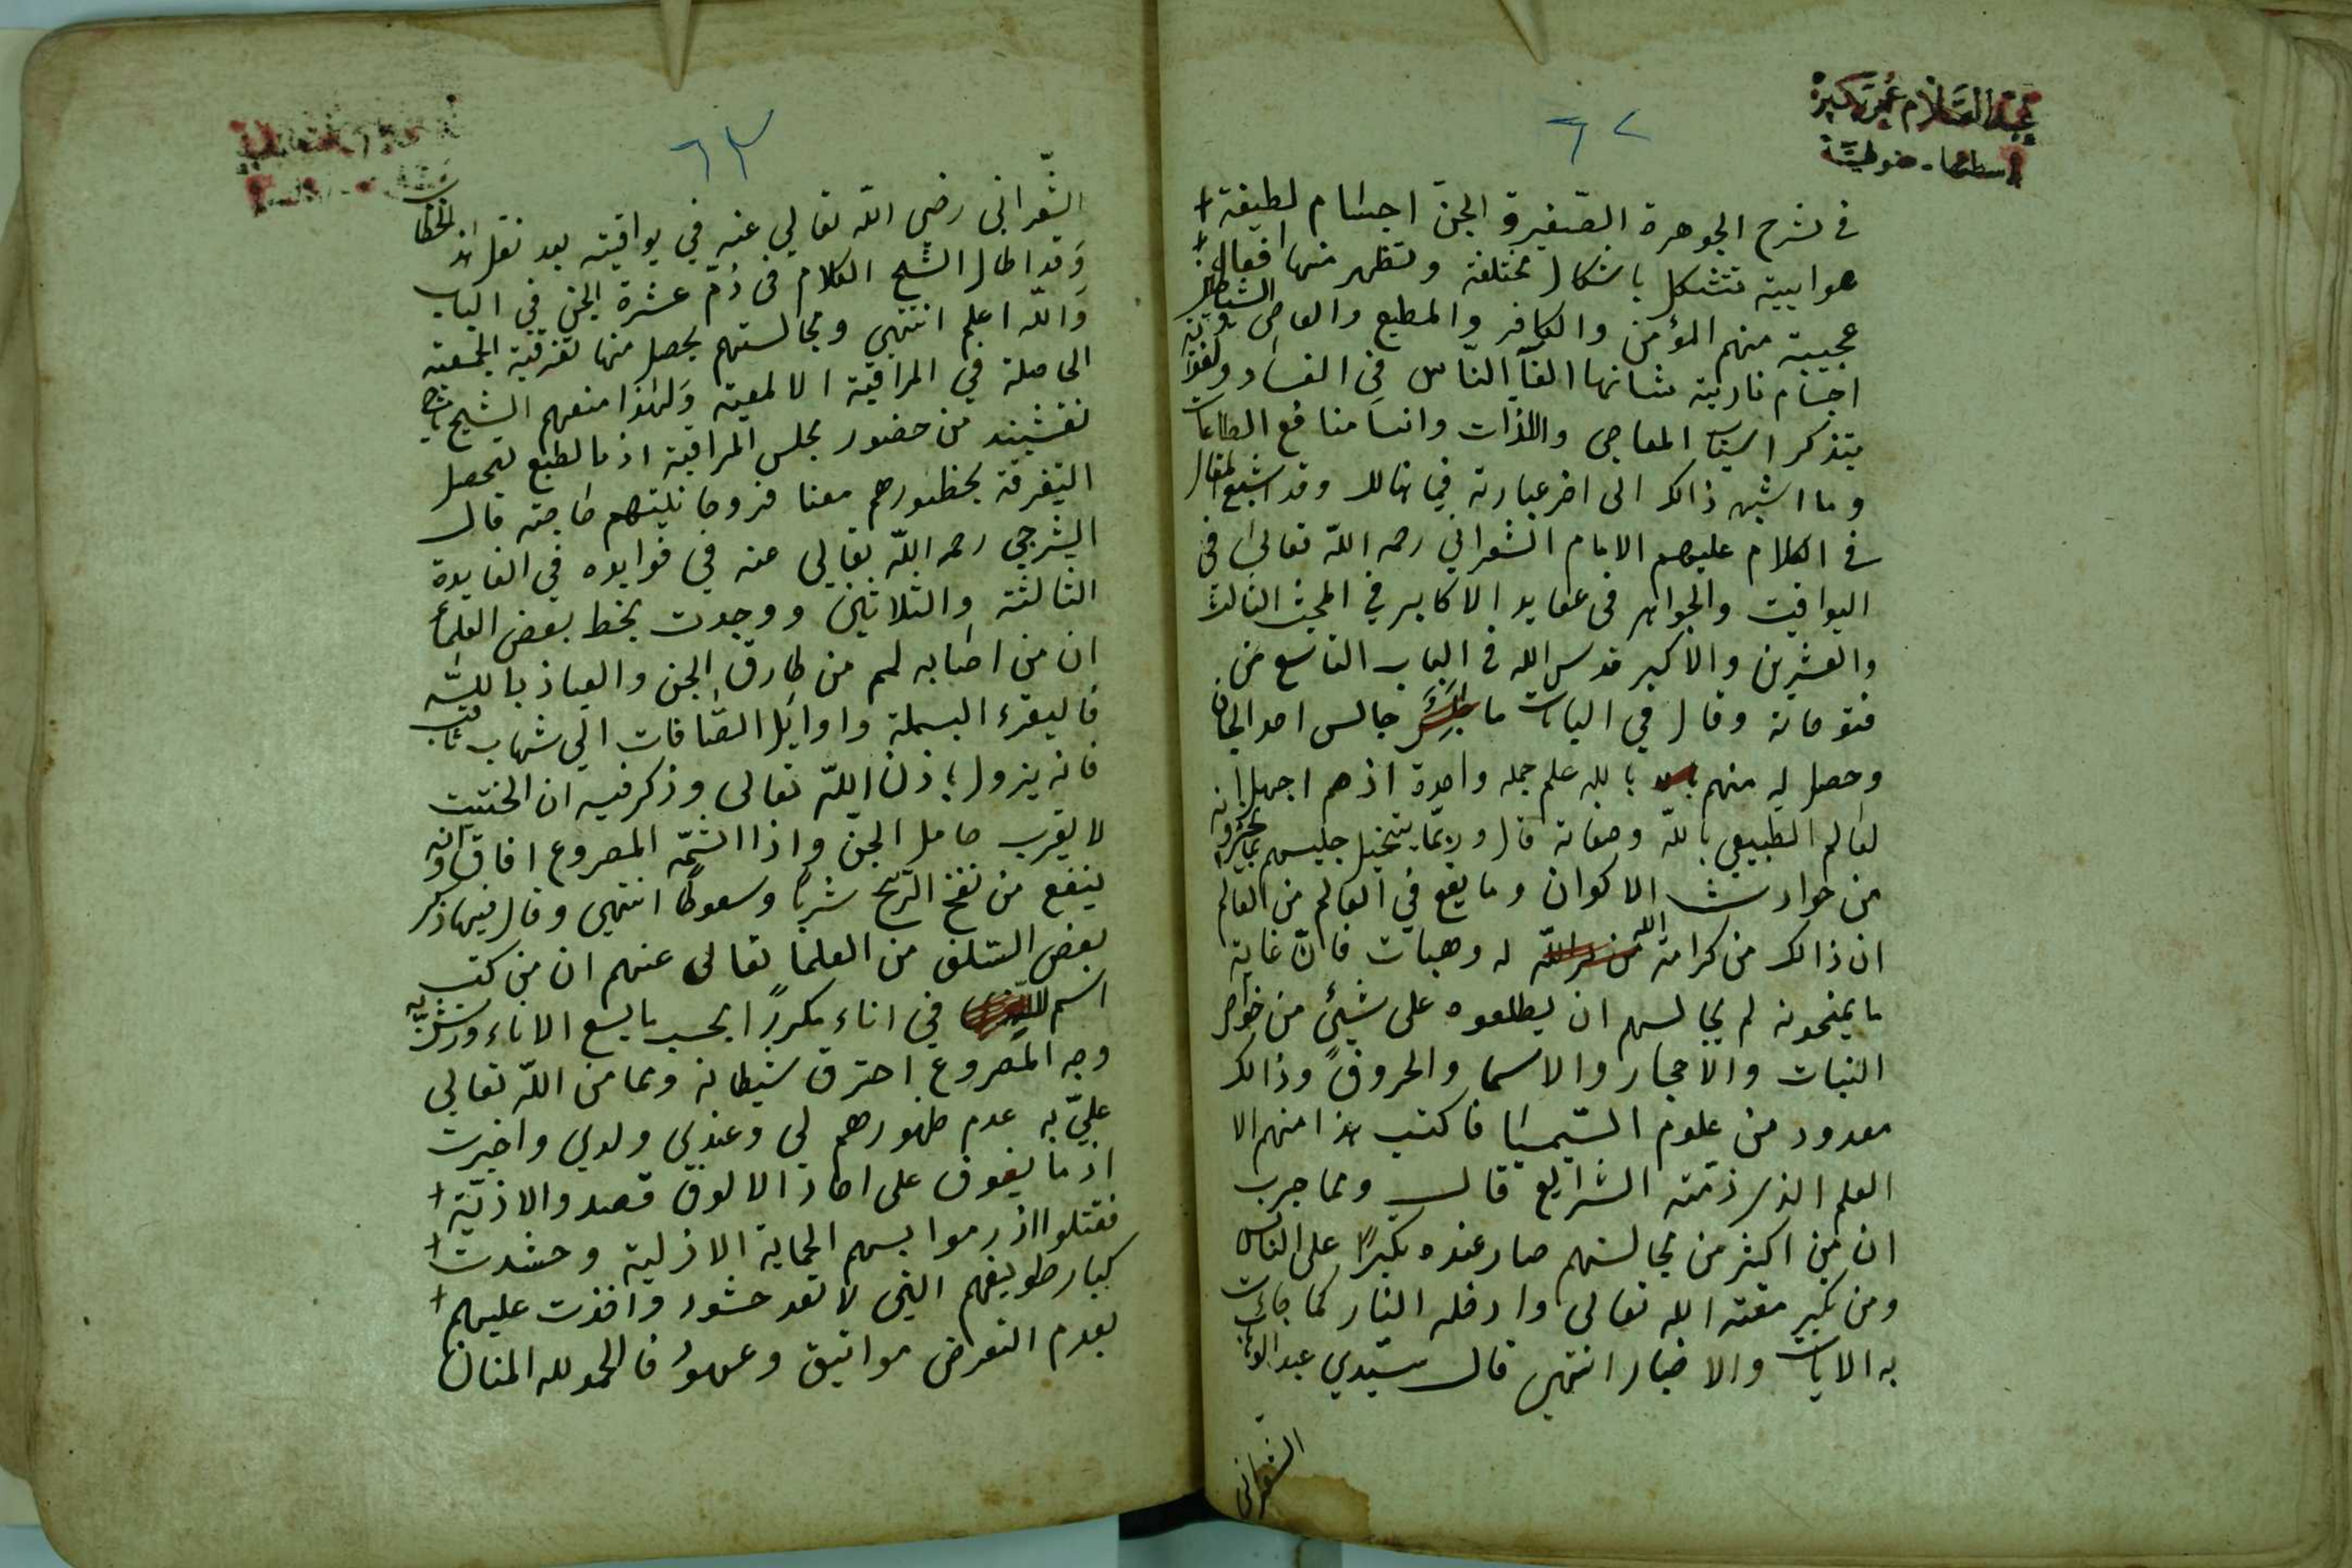 ٦٢
في شرح الجوهرة الصغير والجن اجسام لطيفة
هواييية تتشكل باشكال مختلفة وتظهر منها افعال
عجيبة منهم المؤمن والكافر والمطيع والعاصى والشياطين
اجسام نارية شانها القآ الناس في الفساد و
بتذكر اسباب المعاصى واللذات وانسا منافع الطاعات
وما اشبه ذالك الى اخر عبارته في ذالك وقد اشبع المقال
في الكلام عليهم الامام الشعراني رحمه اللّه تعالى في
اليواقيت والجواهر في عقايد الاكابر في المبحث الثالث
والعشرين والاكبر قدس الله في الباب التاسع من
فتوحاته وقال في الباب ما جالس احد الجان
وحصل له منهم بالله علم جملة واحدة اذ هم اجهل
لعالم الطبيعي باللّه وصفاته قال وربمّا يتخيل جليسهم بما يخبرونه
من حوادث الاكوان وما يقع في العالم من العالم
ان ذالك من كرامة الله له وهيهات فانّ غاية
ما يمنحونه لم يجالسهم ان يطلعوه على شيئ من خواص
النبات والاحجار والاسما والحروف وذالك
معدود من علوم السّيميا فاكتسب هذا منهم الا
العلم الذى ذمّته الشرايع قال ومما جرب
ان من اكثر من مجالستهم صار عنده تكبرًا على الناس
ومن تكبر مقته الله تعالى وادخله النار كما جائت
به الايات والاخبار انتهى قال سيّدي عبد الوهاب
الشعراني
٦٣
الشّعرانى رضى اللّه تعالي عنه في يواقيته بعد نقل هذا
وَقد اطال الشيخ الكلام في ذمّ عشرة الجن في الباب
وَاللّه اعلم انتهي ومجالستهم يحصل منها تفرقة الجمعية
الحاصلة في المراقبة الالمعية وَلهٰذا منعهم الشيخ شاه
نقشبند من حضور مجلس المراقبة اذ بالطبع تحصل
التفرقة بحظورهم معنا فزوجانيتهم قال
الشرجي رحمه اللّه تعالي عنه في فوايده في الفايدة
الثالثة والثلاثين ووجدت بخط بعض العلمأ
ان من اصابه لمم من طارق الجن والعياذ باللّه
فاليقرء البسملة واوايل الصّافات الي شهاب ثاقب
فانه يزول باذن اللّه تعالى وذكر فيه ان الحنتيت
لا يقرب حامل الجن واذا اشتمّه المصروع افاق وانه
ينفع من نفخ الرّيح شربًا وسعوطًا انتهى وقال فيها ذكر
بعض السّلف من العلما تعالى عنهم ان من كتب
اسم اللّه في اناء مكررًا بحسب ما يسع الاناء ورش به
وجه المصروع احترق شيطانه ومما من اللّه تعالي
عليّ به عدم ظهورهم لي وعندي ولدي واخبرت
اذ ما يفوق على احاد الالوف قصدوا الاذيّة
فقتلوا اذ رموا بسهم الحماية الازلية وحشدت
كبار طويفهم التي لا تعد حشود واخذت عليهم
بعدم التعرض مواثيق وعهودُ فالحمد لله المنان